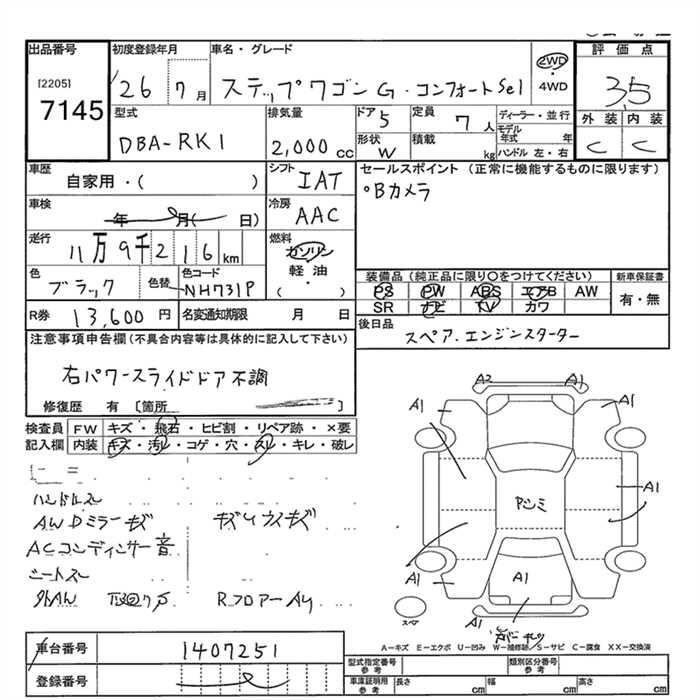 出品番号
[2205]
7145
初度登録年月
'26 7月
車名・グレード
ステップワゴン G・コンフォートSel
2WD
・
4WD
評価点
3.5
外装 内装
C C
型式
DBA-RK1
排気量
2,000 cc
ドア
5
定員
7人
ディーラー・並行
モデル
年式 年
ハンドル 左・右
形状
W
積載
kg
車歴
自家用・( )
シフト
IAT
車検
年 月( 日)
冷房
AAC
走行
11万9千216km
燃料
ガソリン
軽油
( )
色
ブラック
色替
色コード
NH731P
R券
13,600円
名変通知期限 月 日
セールスポイント(正常に機能するものに限ります)
°Bカメラ
装備品(純正品に限り○をつけてください)
PS PW ABS エアB AW
SR ナビ TV カワ
新車保証書
有・無
後日品
スペア.エンジンスターター
注意事項申告欄(不具合内容等は具体的に記入して下さい)
右パワースライドドア不調
修復歴 有〔箇所 〕
検査員 FW キズ・飛石・ヒビ割・リペア跡・×要
記入欄 内装 キズ・汚レ・コゲ・穴・スレ・キレ・破レ
ハンドルスレ
AWDミラーキズ
ACコンディンサー音
シートスレ
外AW
RフロアーAy
A2 A1
A1 A1
Pシミ
A1
A1 A1
A1
スペア
A−キズ E−エクボ U−凹み W−補修跡 S−サビ C−腐食 XX−交換済
車台番号
1407251
登録番号
型式指定番号
参考
類別区分番号
参考
車庫証明用
参考
長さ cm 幅 cm 高さ cm